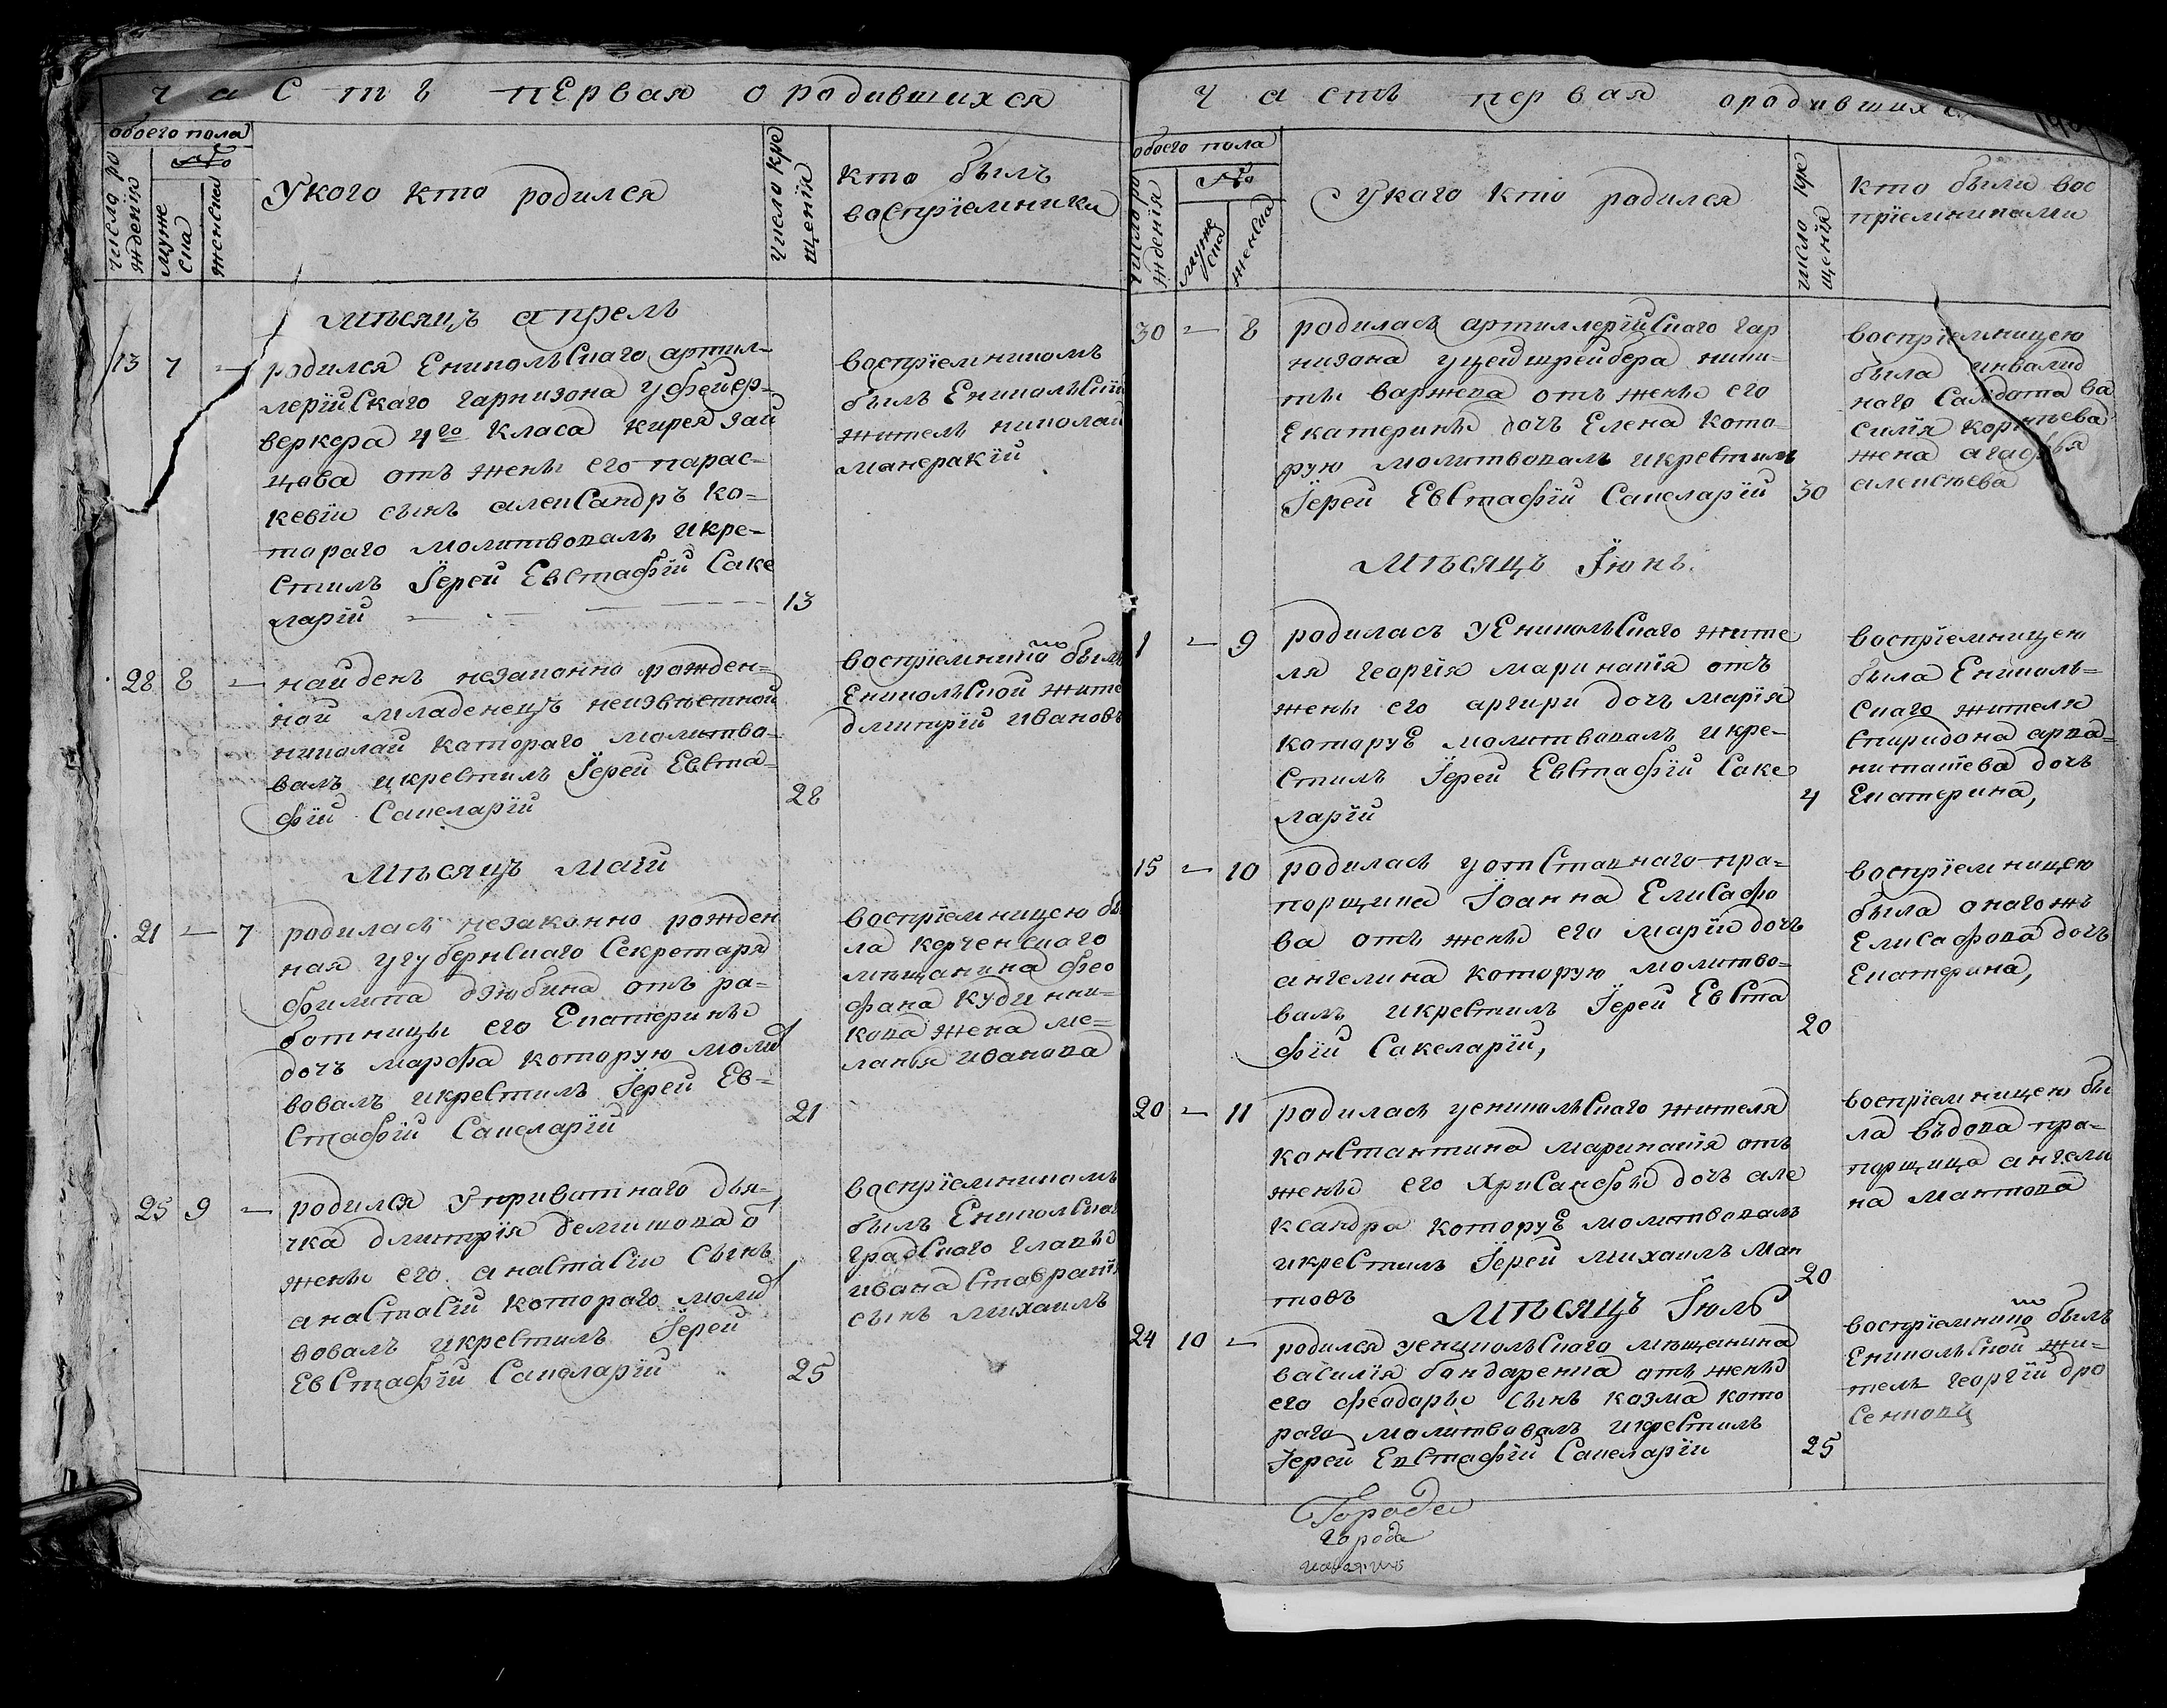 часть первая о родившихся
обоего пола
№
число ро
жденія
муже
ска
женска
Укого кто родился
число кре
щенія
кто былъ
воспріемники
мѣсяцъ апрель
13 7 —
родился Еникольскаго артил-
лерійскаго гарнизона уфейер-
веркера 4го класа кирея зай
цова отъ жены его парас-
кевіи сынъ александръ ко-
тораго молитвовалъ икре-
стилъ Іерей Евстафій Саке
ларій
13
воспріемникомъ
былъ Еникольскій
житель николай
манеракій
28 8 —
найденъ незаконно рожден-
ной младенецъ неизвестной
николай котораго молитво-
валъ икрестилъ Іерей Евста-
фій Сакеларій
28
воспріемнико мъ былъ
Еникольской жите
дмитрій ивановъ
Мѣсяцъ маій
21 — 7
родилась незаконно рожден
ная угубернскаго Секретаря
филипа дзюбина отъ ра-
ботницы его Екатерины
дочъ марфа которую моли
вовалъ икрестилъ Іерей Ев-
стафій Сакеларій
21
воспріемницею бы
ла керченскаго
мѣщанина фео
фана кудинни-
кова жена ме-
ланья иванова
25 9 —
родился Уприватнаго дья-
чка дмитрія демишова о
жены его анастасіи Сынъ
анастасій котораго моли
вовалъ икрестилъ Іерей
Евстафій Сакеларій
25
воспріемникомъ
былъ Еникольскаг
градскаго главы
ивана ставракія
сынъ михаилъ
часть первая ородившихся
обоего пола
№
число ро
жденія
муже
ска
женска
Укаго кто родился
число кре
щенія
кто были вос
пріемниками
30 — 8
родилась артиллерійскаго гар
низона уцейшрейбера ники-
ты варжева отъ жены его
Екатерины дочъ Елена кото-
рую молитвовалъ икрестилъ
Іерей Евстафій Сакеларій
30
воспріемницею
была инвалид
наго Салдата ва
силія корнѣева
жена агафья
алексѣева
Мѣсяцъ Іюнь
1 — 9
родиласъ уЕникольскаго жите
ля георгія маринакія отъ
жены его аргири дочъ марія
которуЕ молитвовалъ икре-
стилъ Іерей Евстафій Саке
ларій
4
воспріемницею
была Ениколь-
скаго жителя
спиридона арва-
нитакева дочъ
Екатерина,
15 — 10
родилась уотставнаго пра-
порщика Іоанна Елисафо
ва отъ жены его маріи дочъ
ангелина которую молитво-
валъ икрестилъ Іерей Евста
фій Сакеларій,
20
воспріемницею
была онагожъ
Елисафова дочъ
Екатерина,
20 — 11
родилась уеникольскаго жителя
константина маринакія отъ
жены его хрисанфы дочъ але
ксандра которуЕ молитвовалъ
икрестилъ Іерей михаилъ ман
товъ
20
воспріемницею бы
ла вѣдова пра-
порщица ангели
на мантова
Мѣсяцъ Іюль
24 10 —
родился уеникольскаго мѣщанина
василія бондаренка отъ жены
его феодоры сынъ козма кото
раго молитвовалъ икрестилъ
Іерей Евстафій Сакеларій
25
воспріемнико мъ былъ
Еникольской жи-
тель георгій дро
Города
города